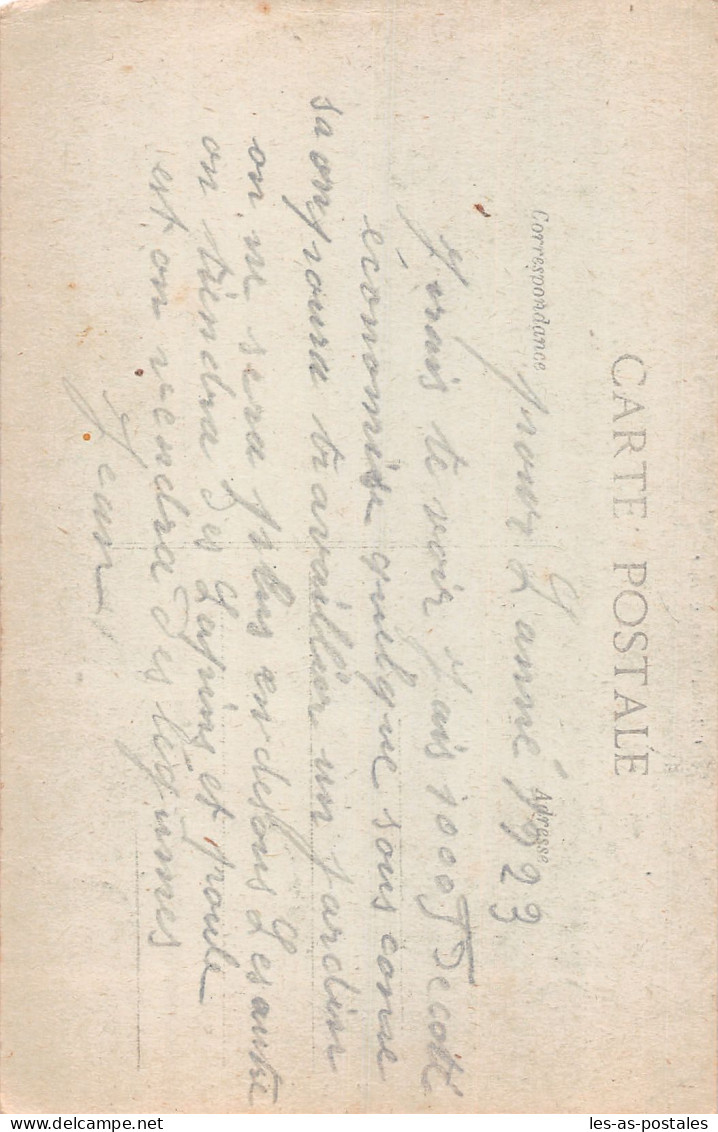 CARTE POSTALE
Correspondance
Adresse
pour L'anné 1923
J'irais te voir J'ais 1000 F De coté
économise quelque sous come
sa on poura travailler un jardin
on ne sera plus en desous Les autre
on tiendra des Lapins et poule
est on vendra des légumes
Jean
les-as-postales